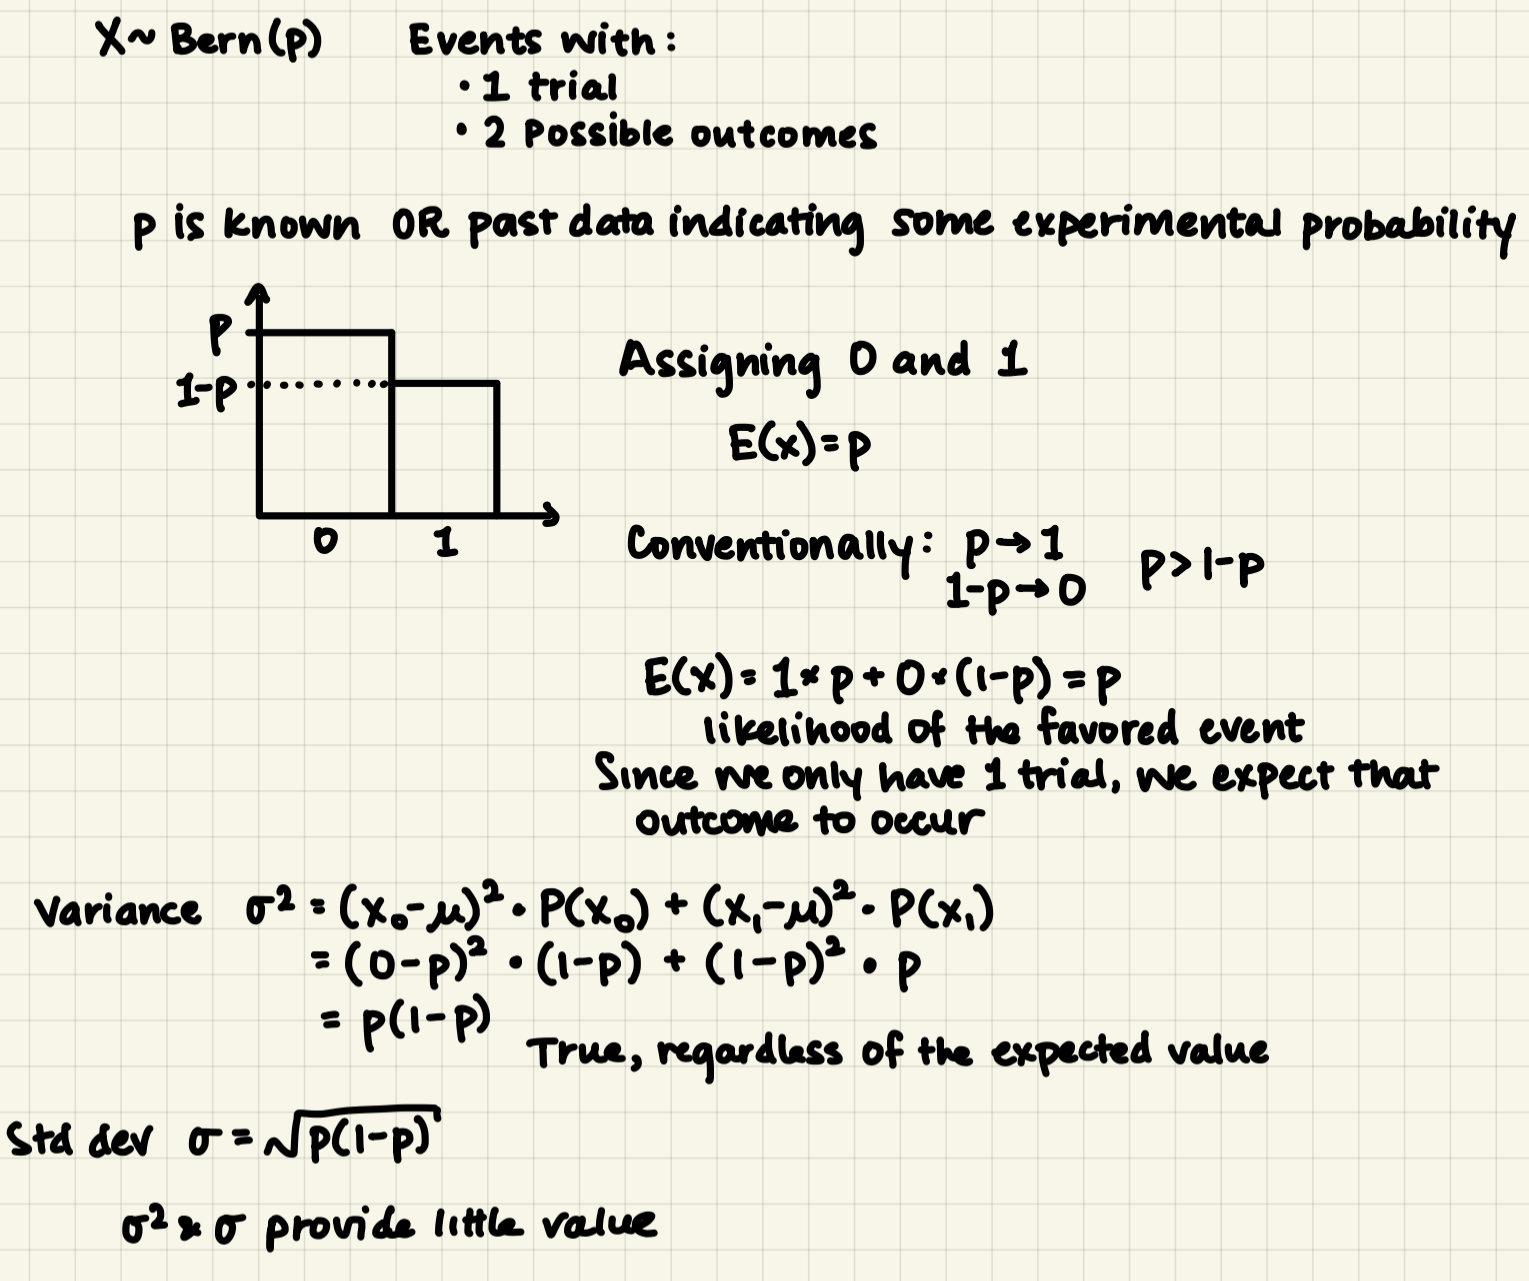 X~ Bern(p) Events with:
• 1 trial
• 2 possible outcomes
p is known OR past data indicating some experimental probability
p
1-p
0 1
Assigning 0 and 1
E(x)=p
Conventionally: p→1
1-p→0
p>1-p
E(x)= 1*p + 0*(1-p) = p
likelihood of the favored event
Since we only have 1 trial, we expect that
outcome to occur
Variance σ² = (x₀-μ)² • P(x₀) + (x₁-μ)² • P(x₁)
= (0-p)² • (1-p) + (1-p)² • p
= p(1-p)
True, regardless of the expected value
Std dev σ = √p(1-p)
σ² & σ provide little value